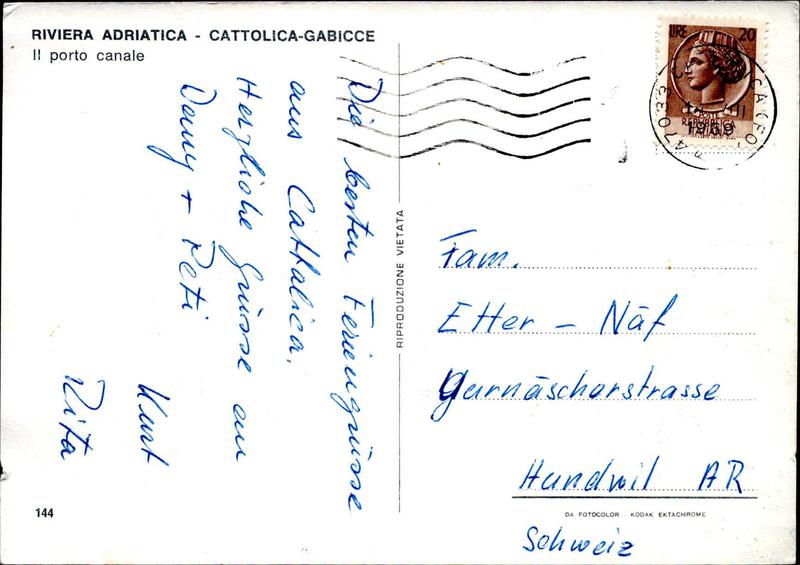 RIVIERA ADRIATICA - CATTOLICA-GABICCE
Il porto canale
Die besten Feriengrüsse
aus Cattolica.
Herzliche Grüsse an
Dany + Peti
Kurt
Rita
144
RIPRODUZIONE VIETATA
LIRE 20
POSTE
REPVBBLICA
47033
1969
Fam.
Etter - Näf
Hundwil AR
Schweiz
DA FOTOCOLOR KODAK EKTACHROME